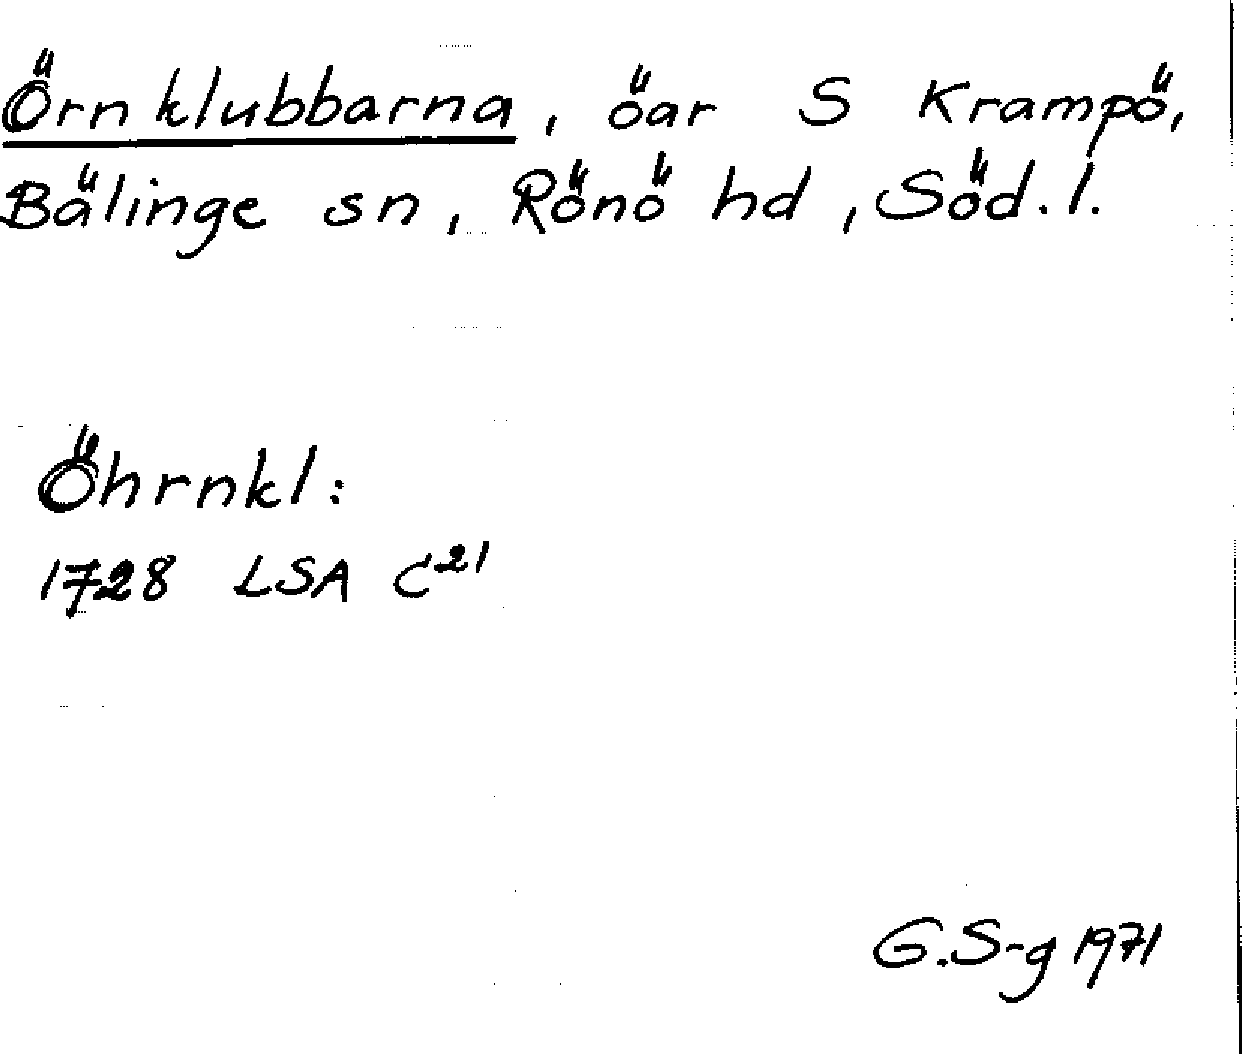 Örnklubbarna, öar S Krampö,
Bälinge sn, Rönö hd, Söd.l.
Öhrnkl:
1728 LSA C21
G.S-g 1971